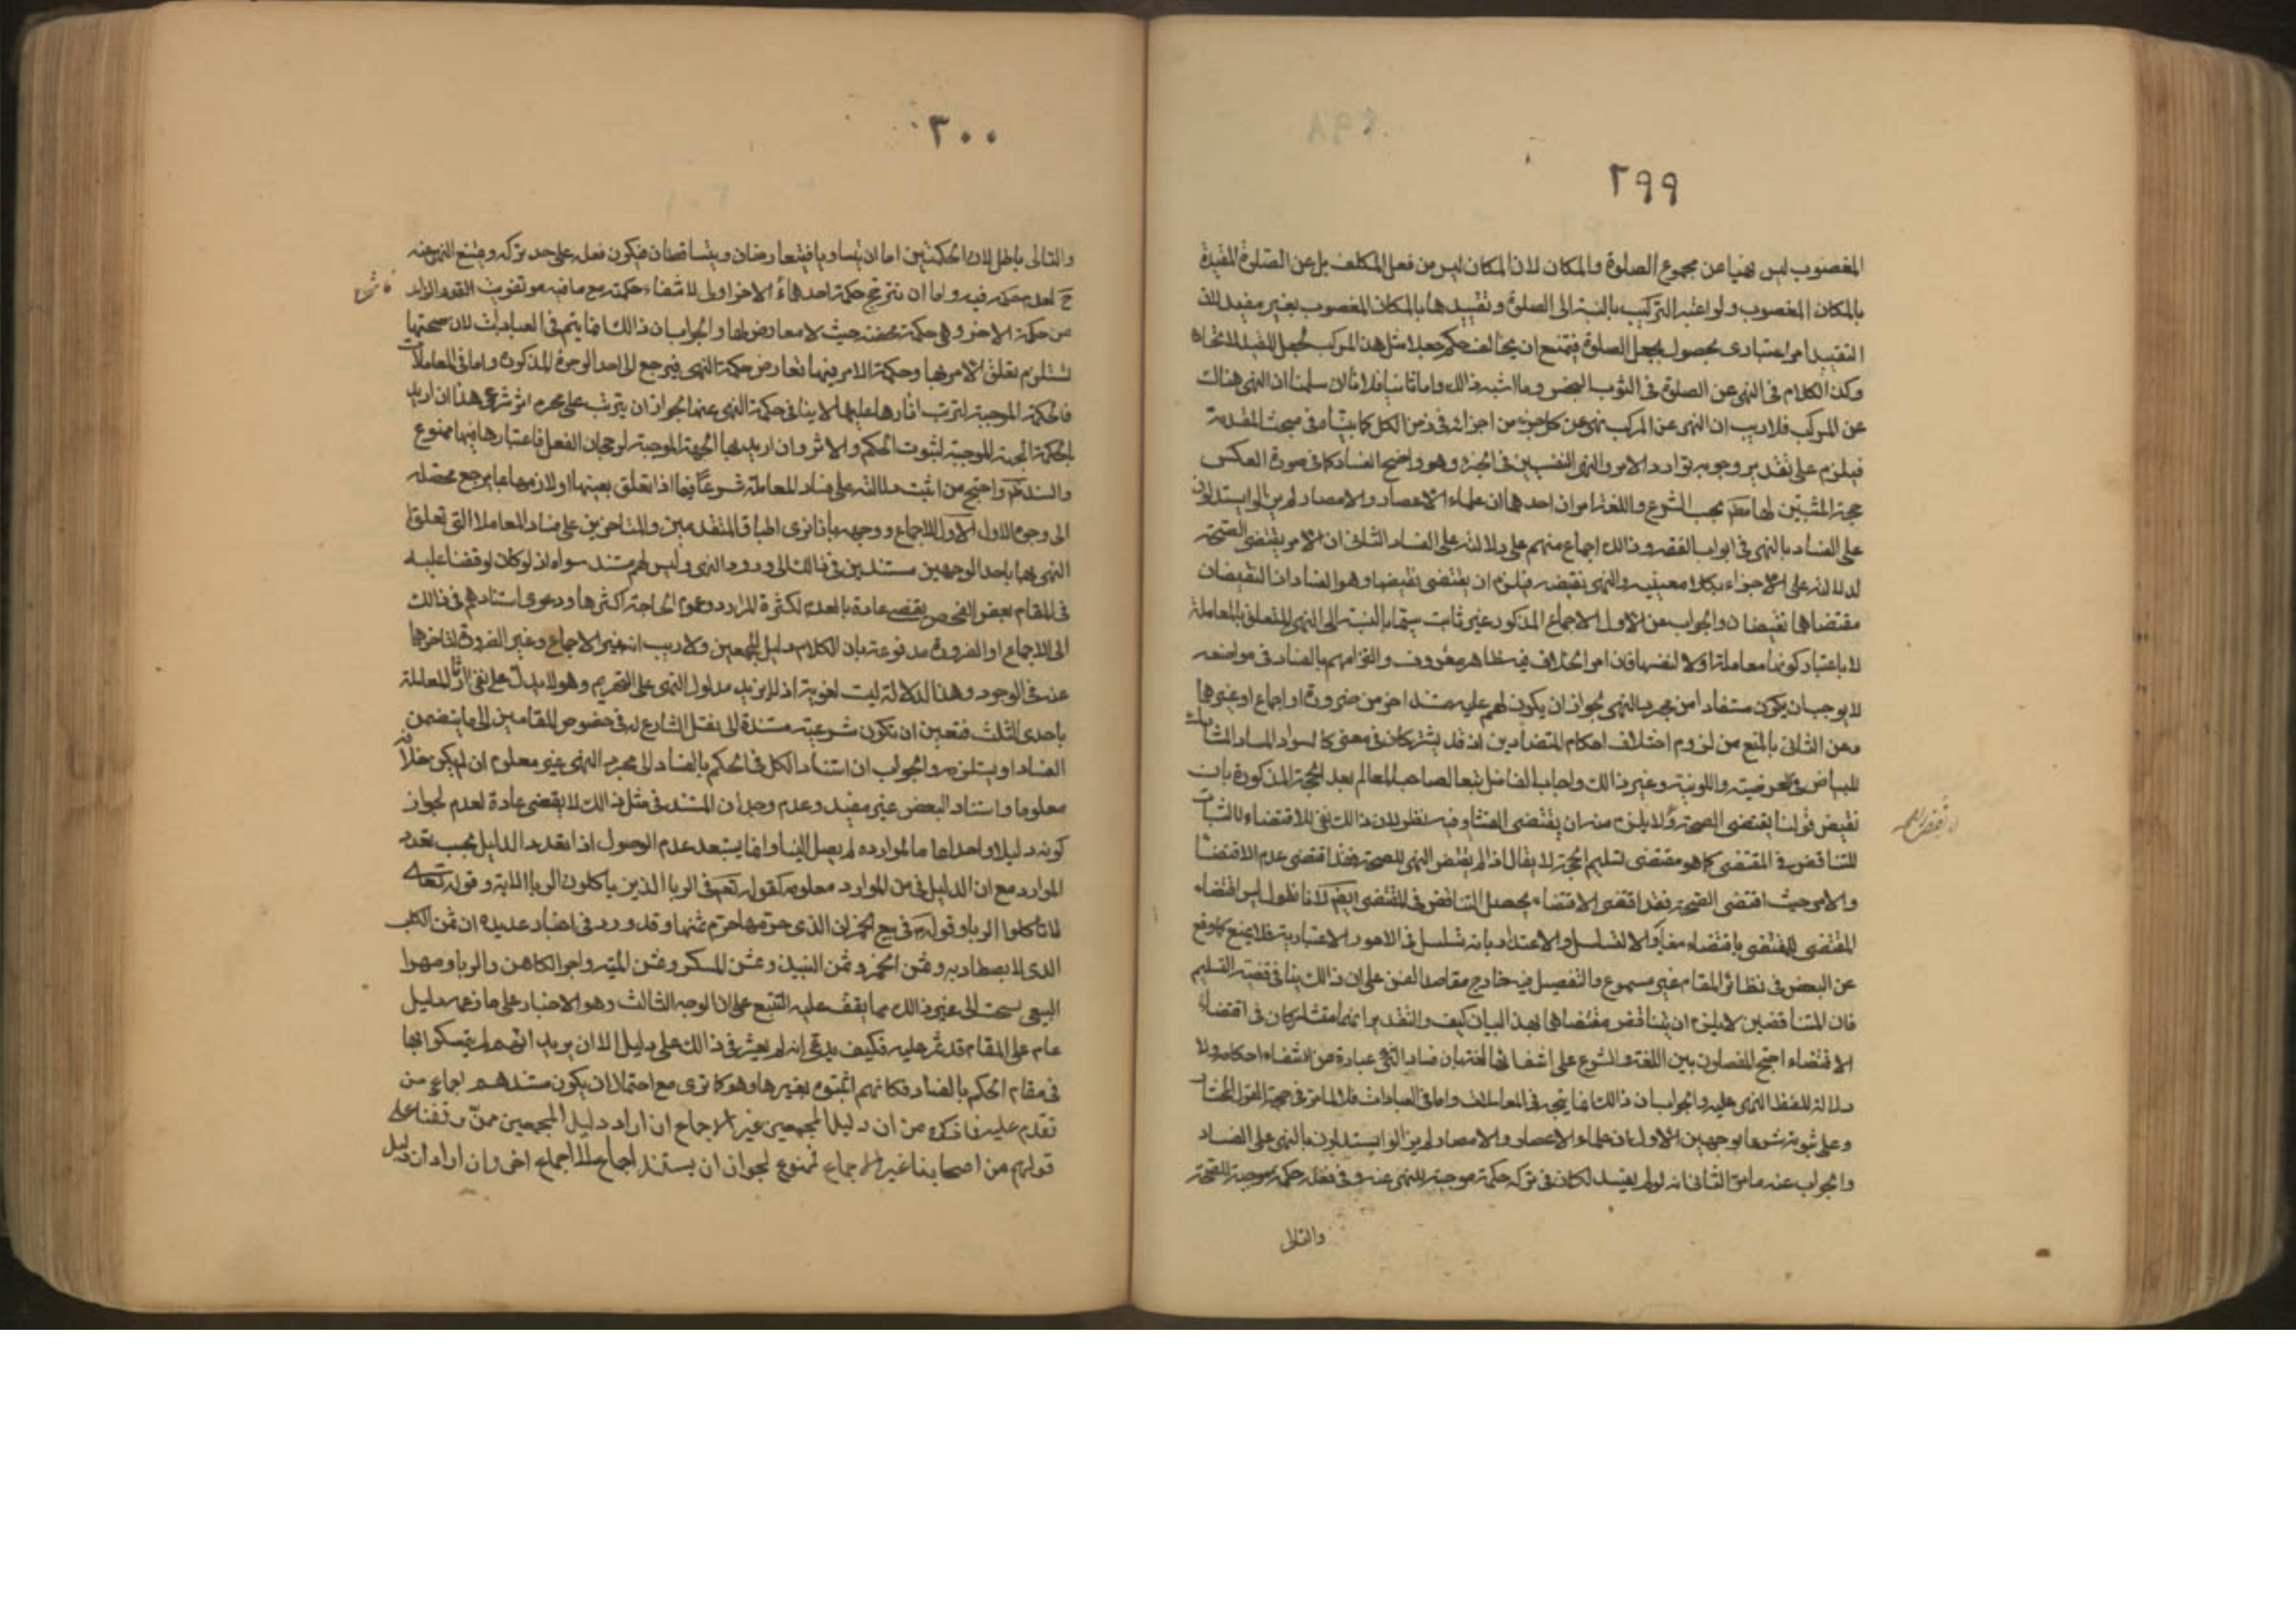 ٢٩٩
المغصوب ليس نهيا عن مجموع الصلوة والمكان لان المكان ليس من فعل المكلف بل عن الصلوة المقيدة
بالمكان المغصوب ولو اعتبر التركيب بالنسبة الى الصلوة وتقييدها بالمكان المغصوب بغير مفيد لان
التقييد امر اعتبارى بحصول بجعل الصلوة فيمتنع ان يخالف حكم جعلا مثل هذا المركب بجعل للقيد للاتحاد
وكذا الكلام فى النهى عن الصلوة فى الثوب النجس وما اشبه ذلك واما ثانيا فلانا ان سلمنا ان النهى هناك
عن المركب فلا ريب ان النهى عن المركب نهى عن كل جزء من اجزائه فى ضمن الكل كما بيناه فى مبحث المقدمة
فيلزم على تقدير وجوبه توارد الامر والنهى النفسيين فى الجزء وهو واضح الفساد كما فى صورة العكس
حجة المثبتين لها بحسب الشرع واللغة امران احدهما ان علماء الاعصار والامصار لم يزالوا يستدلون
على الفساد بالنهى فى ابواب الفقه وذلك اجماع منهم على دلالته على الفساد الثانى ان الامر يقتضى الصحة
لدلالته على الاجزاء بكلا معنييه والنهى نقيضه فيلزم ان يقتضى نقيضها وهو الفساد اذ النقيضان
مقتضاهما نقيضان والجواب عن الاول الاجماع المذكور غير ثابت سيما بالنسبة الى النهى المتعلق بالمعاملة
لا باعتبار كونها معاملة او لا لنفسها فان امر الخلاف فيه ظاهر معروف والتزامهم بالفساد فى مواضعه
لا يوجب ان يكون مستفادا من مجرد النهى لجواز ان يكون لهم عليه مستند اخر من ضرورة او اجماع او غيرها
وعن الثانى بالمنع من لزوم اختلاف احكام المتضادين اذ قد يشتركان فى معنى كالسواد المشارك
للبياض فى العرضية واللونية وغير ذلك واجاب الفاضل تبعا لصاحب المعالم بعد الحجة المذكورة بان
نقيض قولنا يقتضى الصحة ولا يلزم منه ان يقتضى الفساد وفيه نظر لان ذلك نفى للاقتضاء لا اثبات
للتناقض فى المقتضى كما هو مقتضى تسليم الحجة لا يقال اذا لم يقتض النهى للصحة فقد اقتضى عدم الاقتضاء
والامر حيث اقتضى الصحة فقد اقتضى الاقتضاء يحصل التناقض فى المقتضى ايضا لانا نقول ليس اقتضاء
المقتضى للمقتضى باقتضاء مغاير والا لتسلسل والاعتذار بانه تسلسل فى الامور الاعتبارية فلا يمنع كما وقع
عن البعض فى نظائر المقام غير مسموع والتفصيل فيه خارج مقاصد الفن على ان ذلك ينافى قضية التسليم
فان المتناقضين لا يلزم ان يتناقض مقتضاهما بهذا البيان كيف والتقدير انهما متشاركان فى اقتضاء
الاقتضاء احتج المفصلون بين اللغة والشرع على انتفائها لغة بان فساد الشىء عبارة عن انتفاء احكامه ولا
دلالة للفظ النهى عليه والجواب ان ذلك انما يتجه فى المعاملات واما فى العبادات فلما مر فى حجة القول المختار
وعلى ثبوته شرعا بوجهين الاول ان علماء الاعصار والامصار لم يزالوا يستدلون بالنهى على الفساد
والجواب عنه ما مر الثانى انه لو لم يفسد لكان فى تركه حكمة موجبة للنهى عنه وفى فعله حكمة موجبة للصحة
والتالى
٣٠٠
والتالى باطل لان الحكمتين اما ان يتساويا فيتعارضان ويتساقطان فيكون فعله على حد تركه ويمتنع النهى عنه
ح لعدم حكمة فيه واما ان تترجح حكمة احدهما الاخر اولى لانتفاء حكمته مع ما فيه من تفويت القدر الزائد
من حكمة الاخر وهى حكمة محضة حيث لا معارض لها والجواب ان ذلك انما يتم فى العبادات لان صحتها
تستلزم تعلق الامر بها وحكمة الامر بها تعارض حكمة النهى فيرجع الى احد الوجوه المذكورة واما فى المعاملات
فالحكمة الموجبة لترتب اثارها عليها لا ينافى حكمة النهى عنها لجواز ان يترتب على محرم اثر شرعى هذا ان اريد
بالحكمة الجهة الموجبة لثبوت الحكم والاثر وان اريد بها الجهة الموجبة لرجحان الفعل فاعتبارها فيها ممنوع
والسند واحتج من اثبت دلالته على فساد المعاملة شرعا فيما اذا تعلق بعينها او لازمها بما يرجع محصله
الى وجوه الاول الاجماع ووجهه بانا نرى اطباق المتقدمين والمتاخرين على فساد المعاملات التى تعلق
النهى بها باحد الوجهين مستندين فى ذلك الى ورود النهى وليس لهم مستند سواه اذ لو كان لوقفنا عليه
فى المقام بعض الفحص يقضى عادة بالعدم لكثرة الموارد وعموم الحاجة اكثرها ودعوى استنادهم فى ذلك
الى الاجماع او الضرورة مدفوعة بان الكلام دليل المجمعين ولا ريب انه غير الاجماع وغير الضرورة لتاخرهما
عنه فى الوجود وهذا الدلالة ليست لغوية اذ لا يزيد مدلول النهى على التحريم وهو لا يدل على نفى اثار المعاملة
باحدى الثلث فتعين ان تكون شرعية مستندة الى نقل الشارع له فى خصوص المقامين الى ما يتضمن
الفساد او يستلزمه والجواب ان استناد الكل فى الحكم بالفساد الى مجرد النهى غير معلوم ان لم يكن خلافه
معلوما واستناد البعض غير مفيد وعدم وجدان المستند فى مثل ذلك لا يقضى عادة لعدم لجواز
كونه دليلا واحدا عاما لموارده لم يصل الينا وانما يستبعد عدم الوصول اذا تعدد الدليل بحسب تعدد
الموارد مع ان الدليل فى من الموارد معلوم كقوله تعالى فى الربا الذين ياكلون الربا الاية وقوله تعالى
لا تاكلوا الربا وقوله فى بيع الخمر ان الذى حرمها حرم ثمنها وقد ورد فى اخبار عديدة ان ثمن الكلب
الذى لا يصطاد به وثمن الخمر وثمن النبيذ وثمن المسكر وثمن الميتة واجر الكاهن والربا ومهر
البغى سحت الى غير ذلك مما يقف عليه التتبع على ان الوجه الثالث وهو الاخبار على ما زعمه دليل
عام على المقام قد عثر عليه فكيف يدعى انه لم يعثر فى ذلك على دليل الا ان يريد انهم لم يتمسكوا بها
فى مقام الحكم بالفساد فكانهم اثبتوه بغيرها وهو كما ترى مع احتمال ان يكون مستندهم اجماع من
تقدم عليه فما ذكره من ان دليل المجمعين غير الاجماع ان اراد دليل المجمعين ممن وقفنا على
قولهم من اصحابنا غير الاجماع ممنوع لجواز ان يستند اجماع الى اجماع اخر وان اراد ان دليل